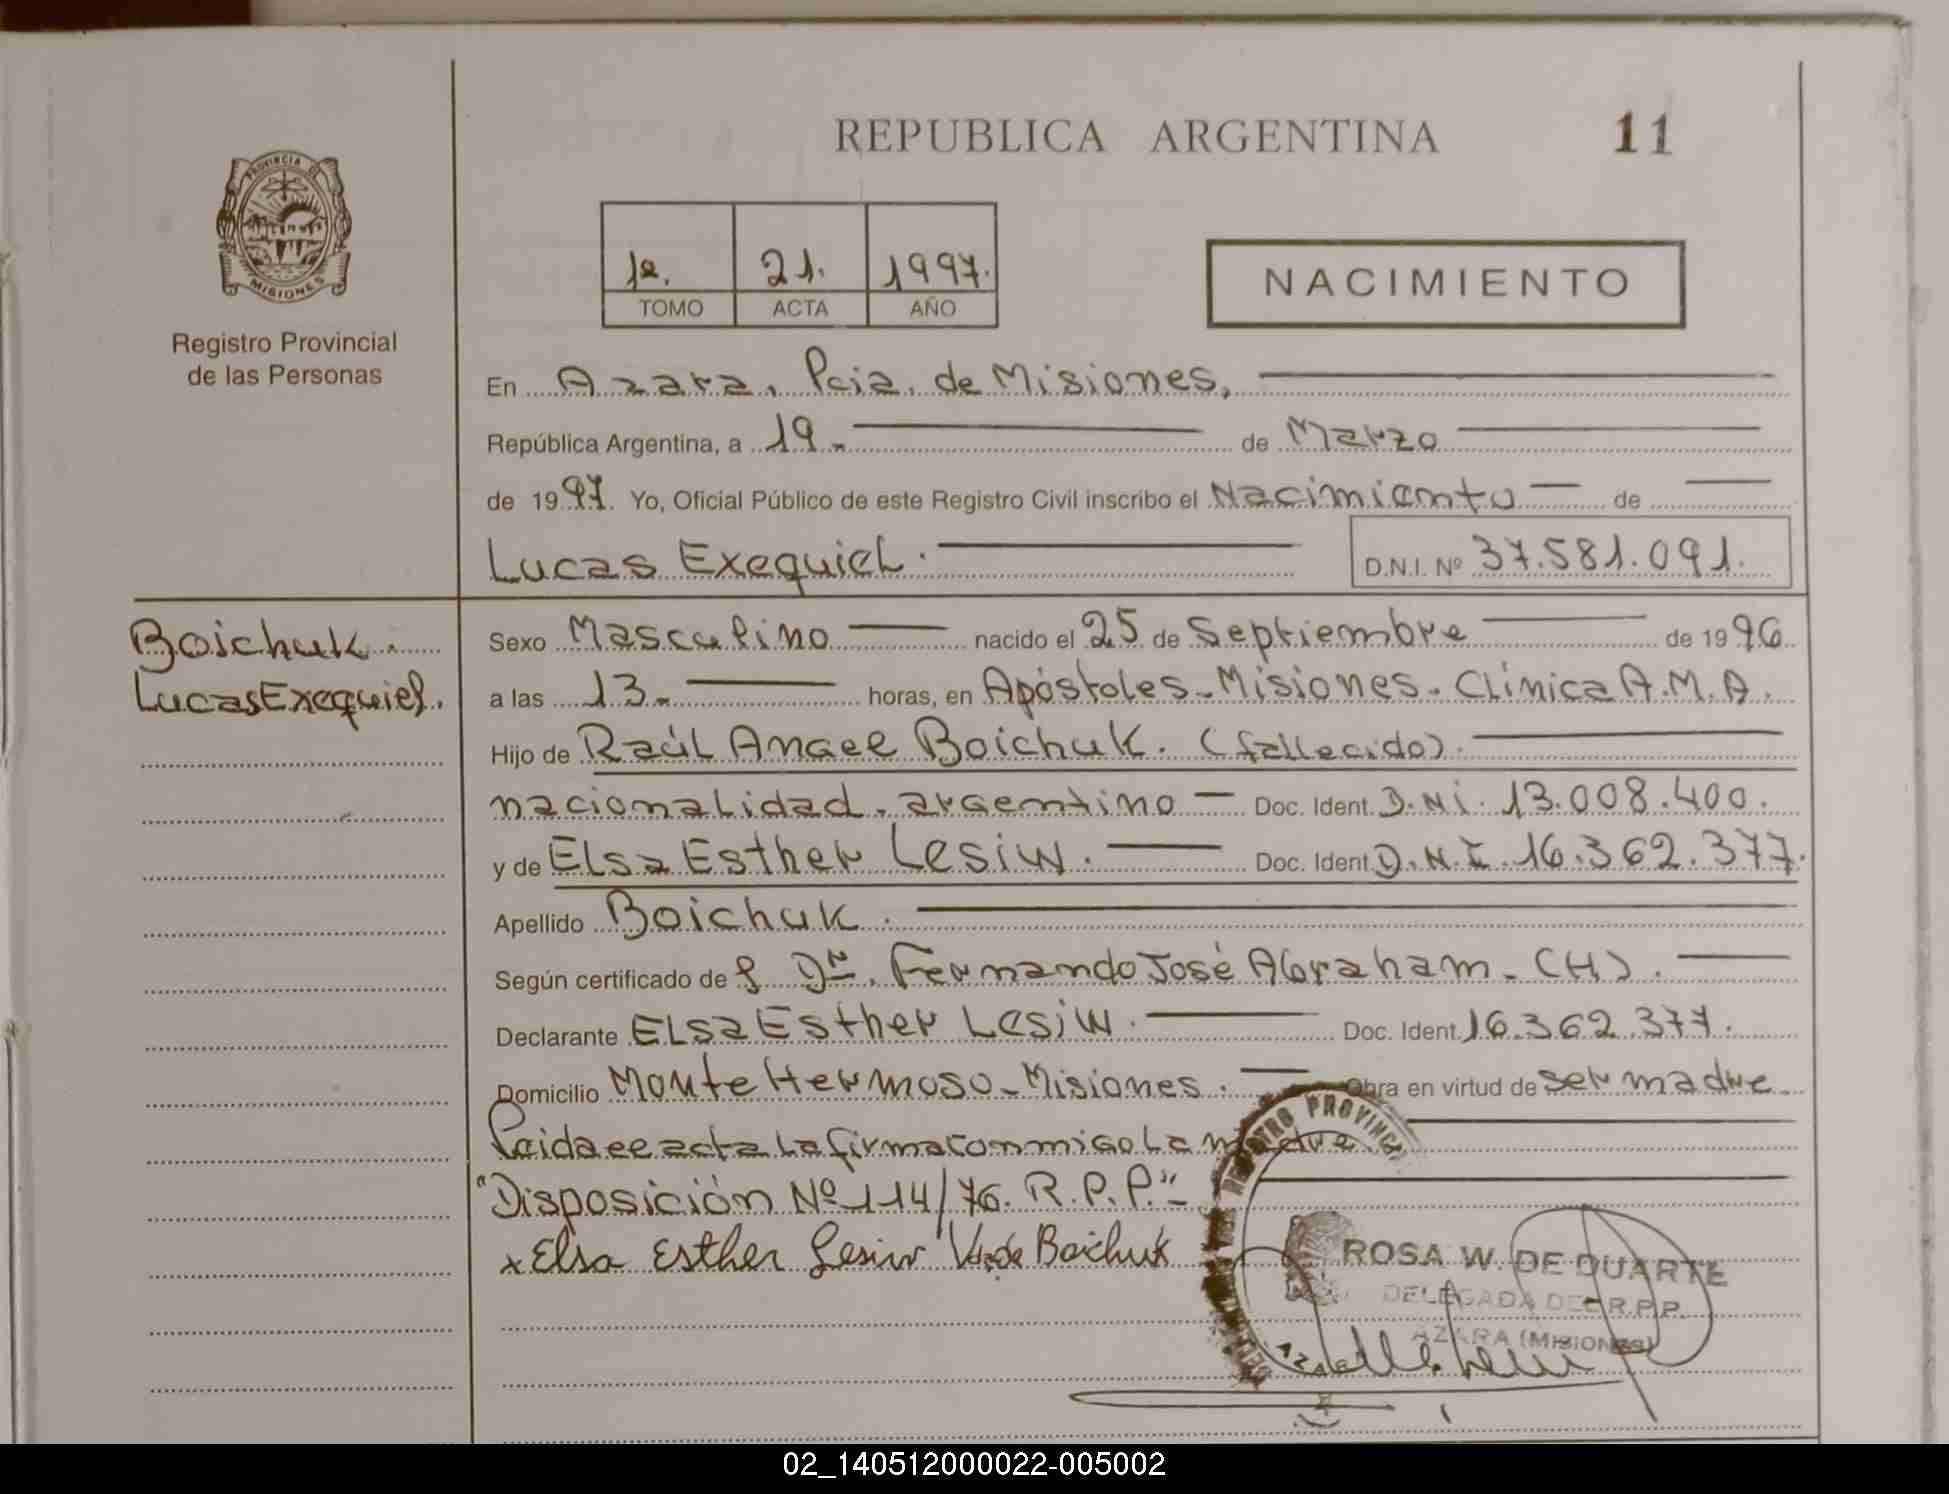 REPUBLICA ARGENTINA
11
PROVINCIA DE
MISIONES
Registro Provincial
de las Personas
1º. 21. 1997.
TOMO ACTA AÑO
NACIMIENTO
En Azara, Pcia. de Misiones,
República Argentina, a 19.- de Marzo
de 1997. Yo, Oficial Público de este Registro Civil inscribo el Nacimiento de
Lucas Exequiel. D.N.I. Nº 37.581.091.
Boichuk.
Lucas Exequiel.
Sexo Masculino nacido el 25 de Septiembre de 1996
a las 13.- horas, en Apóstoles-Misiones. Clínica A.M.A.
Hijo de Raúl Angel Boichuk. (fallecido).
nacionalidad. argentino Doc. Ident. D.N.I. 13.008.400.
y de Elsa Esther Lesiw. Doc. Ident. D.N.I 16.362.377.
Apellido Boichuk.
Según certificado de Dr. Fernando José Abraham. (H).
Declarante Elsa Esther Lesiw. Doc. Ident. 16.362.377.
Domicilio Monte Hermoso-Misiones. Obra en virtud de ser madre
Leida el acta la firma conmigo la madre
"Disposición Nº 114/76. R.P.P."-
x Elsa Esther Lesiw Vda de Boichuk
REGISTRO PROVINCIAL
ROSA W. DE DUARTE
DELEGADA DEL R.P.P.
AZARA (MISIONES)
02_140512000022-005002